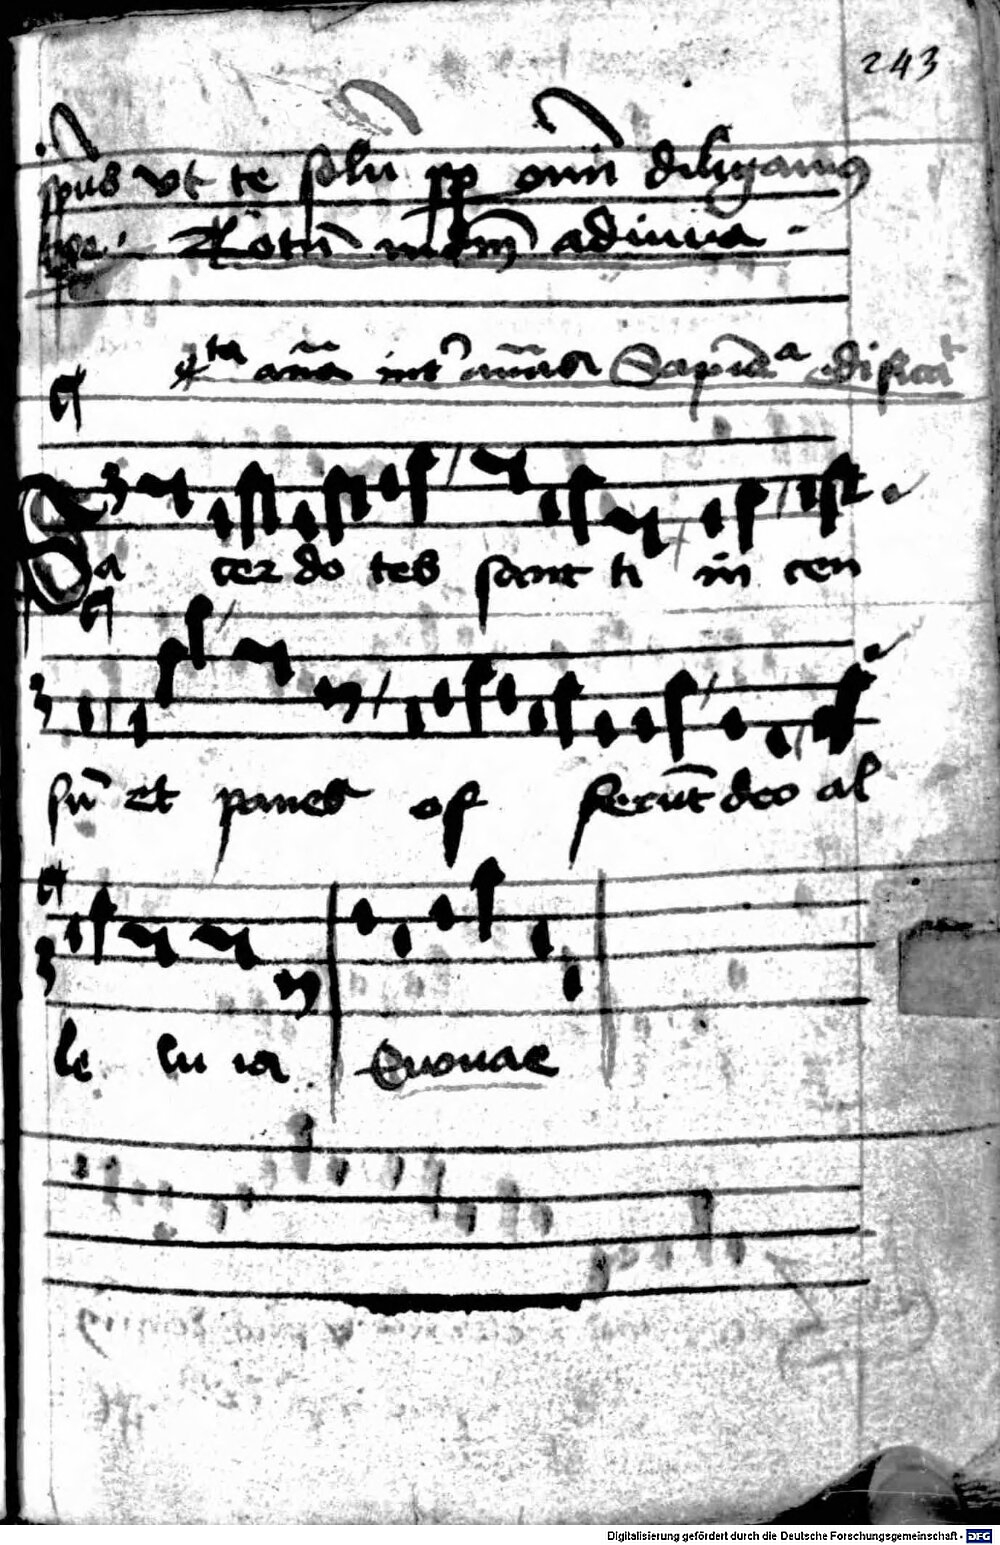 243
spūs vt te solū pp om̄i diligamus
Totū mdm̄ adiuua
4ta añā int
Sa cer do tes sanc ti in cen
sū et panes of ferūt deo al
le lu ia Euouae
Digitalisierung gefördert durch die Deutsche Forschungsgemeinschaft - DFG